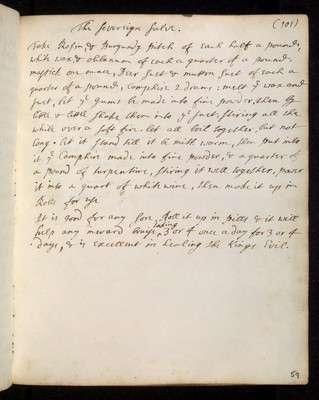 The Soveraign Salve. (101)
Take Rosin, & Burgundy pitch of each half a pound,
white wax, & olibanum of each a quarter of a pound,
mastick one ounce, Deer suet & mutton suet of each a
quarter of a pound, camphire 2 drams: melt yᵉ wax and
suet, let yᵉ gums be made into fine powder, then by
little & little shake them into yᵉ suet, stiring all the
while over a soft fire. let all boil together, but not
long. let it stand till it be milk warm, then put into
it yᵉ Camphire made into fine powder, & a quarter of
a pound of turpentine, stiring it well together, power
it into a quart of white wine, then make it up in
Rolls for use
It is good for any sore. Roll it up in pills & it will
help any inward bruise, taking 3 or 4 once a day for 3 or 4
days, & is excellent in healing the Kings Evil.
59